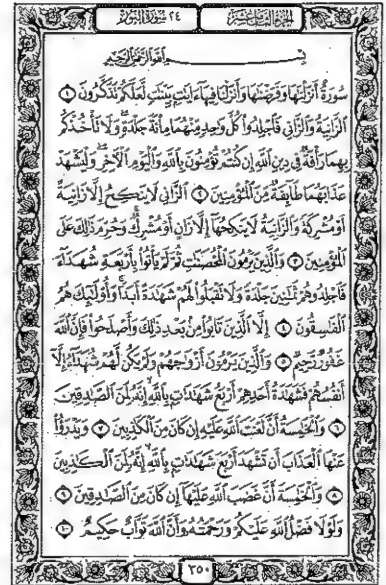 الجزء الثامن عشر
٢٤ سورة النور
بسم الله الرحمن الرحيم
سُورَةٌ أَنزَلْنَٰهَا وَفَرَضْنَٰهَا وَأَنزَلْنَا فِيهَآ ءَايَٰتٍۭ بَيِّنَٰتٍ لَّعَلَّكُمْ تَذَكَّرُونَ ١
ٱلزَّانِيَةُ وَٱلزَّانِى فَٱجْلِدُوا۟ كُلَّ وَٰحِدٍ مِّنْهُمَا مِا۟ئَةَ جَلْدَةٍ وَلَا تَأْخُذْكُم
بِهِمَا رَأْفَةٌ فِى دِينِ ٱللَّهِ إِن كُنتُمْ تُؤْمِنُونَ بِٱللَّهِ وَٱلْيَوْمِ ٱلْءَاخِرِ وَلْيَشْهَدْ
عَذَابَهُمَا طَآئِفَةٌ مِّنَ ٱلْمُؤْمِنِينَ ٢ ٱلزَّانِى لَا يَنكِحُ إِلَّا زَانِيَةً
أَوْ مُشْرِكَةً وَٱلزَّانِيَةُ لَا يَنكِحُهَآ إِلَّا زَانٍ أَوْ مُشْرِكٌ وَحُرِّمَ ذَٰلِكَ عَلَى
ٱلْمُؤْمِنِينَ ٣ وَٱلَّذِينَ يَرْمُونَ ٱلْمُحْصَنَٰتِ ثُمَّ لَمْ يَأْتُوا۟ بِأَرْبَعَةِ شُهَدَآءَ
فَٱجْلِدُوهُمْ ثَمَٰنِينَ جَلْدَةً وَلَا تَقْبَلُوا۟ لَهُمْ شَهَٰدَةً أَبَدًا وَأُو۟لَٰٓئِكَ هُمُ
ٱلْفَٰسِقُونَ ٤ إِلَّا ٱلَّذِينَ تَابُوا۟ مِنۢ بَعْدِ ذَٰلِكَ وَأَصْلَحُوا۟ فَإِنَّ ٱللَّهَ
غَفُورٌ رَّحِيمٌ ٥ وَٱلَّذِينَ يَرْمُونَ أَزْوَٰجَهُمْ وَلَمْ يَكُن لَّهُمْ شُهَدَآءُ إِلَّآ
أَنفُسُهُمْ فَشَهَٰدَةُ أَحَدِهِمْ أَرْبَعُ شَهَٰدَٰتٍۭ بِٱللَّهِ إِنَّهُۥ لَمِنَ ٱلصَّٰدِقِينَ
٦ وَٱلْخَٰمِسَةُ أَنَّ لَعْنَتَ ٱللَّهِ عَلَيْهِ إِن كَانَ مِنَ ٱلْكَٰذِبِينَ ٧ وَيَدْرَؤُا۟
عَنْهَا ٱلْعَذَابَ أَن تَشْهَدَ أَرْبَعَ شَهَٰدَٰتٍۭ بِٱللَّهِ إِنَّهُۥ لَمِنَ ٱلْكَٰذِبِينَ
٨ وَٱلْخَٰمِسَةَ أَنَّ غَضَبَ ٱللَّهِ عَلَيْهَآ إِن كَانَ مِنَ ٱلصَّٰدِقِينَ ٩
وَلَوْلَا فَضْلُ ٱللَّهِ عَلَيْكُمْ وَرَحْمَتُهُۥ وَأَنَّ ٱللَّهَ تَوَّابٌ حَكِيمٌ ١٠
٣٥٠